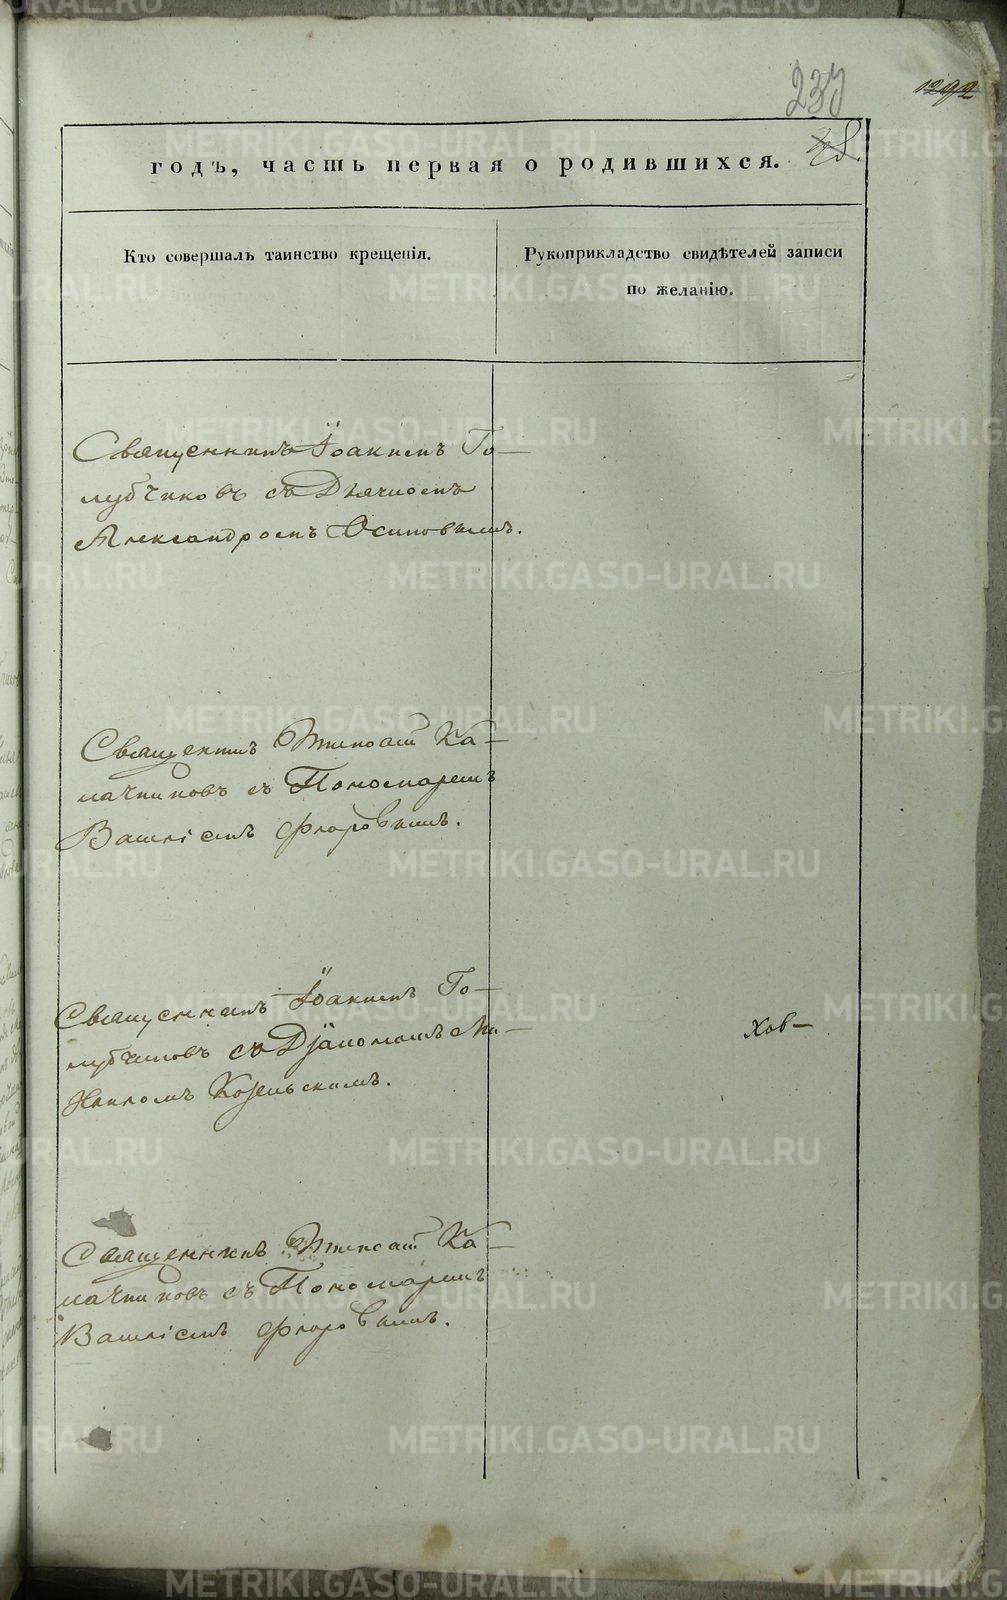 237
1292
48.
годъ, часть первая о родившихся.
Кто совершалъ таинство крещенія.
Рукоприкладство свидѣтелей записи
по желанію.
Священникъ Іоакимъ Го-
лубчиковъ съ Дьячкомъ
Александромъ Осиповымъ.
Священникъ Ка-
лачниковъ съ Пономаремъ
Василіемъ Флоровымъ.
Священникъ Іоакимъ Го-
лубчиковъ съ Діакономъ Ми-
хаиломъ Козельскимъ.
Хов-
Священникъ Ка-
лачниковъ съ Пономаремъ
Василіемъ Флоровымъ.
METRIKI.GASO-URAL.RU